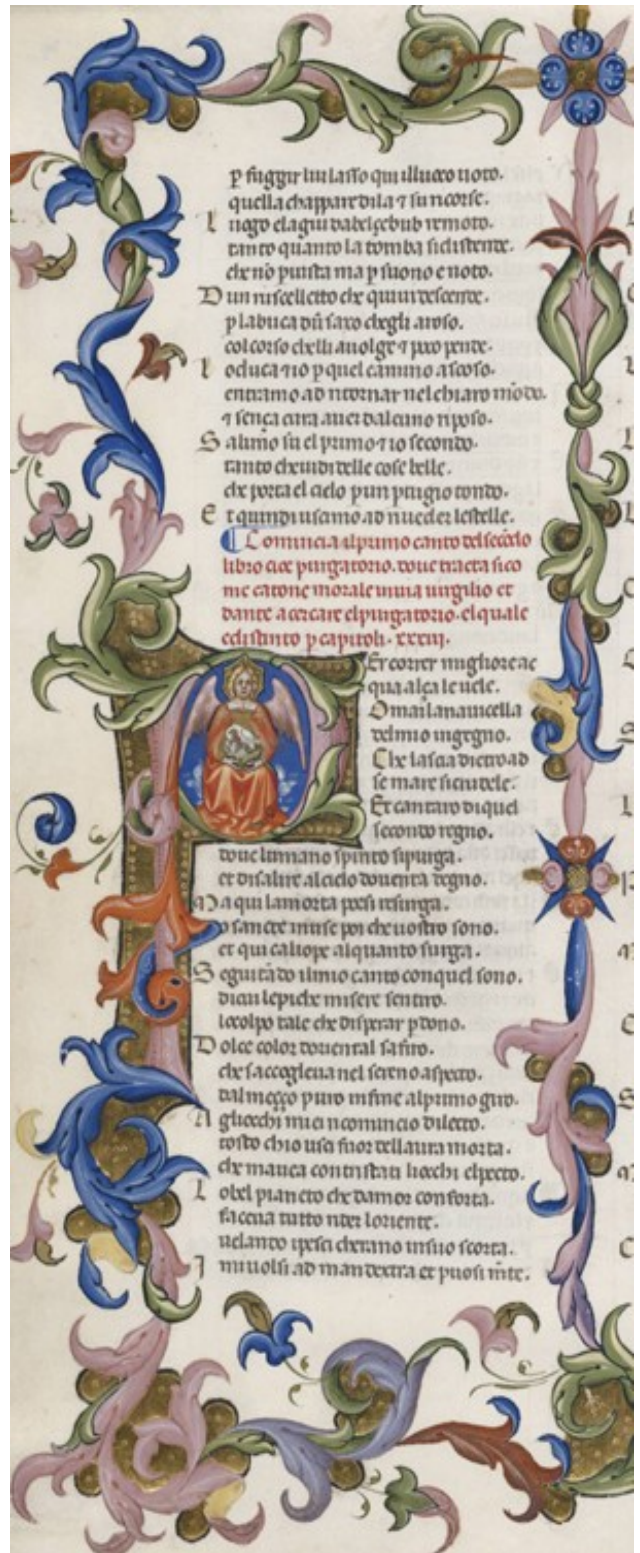 p fuggir lui lasso qui illuoco uoto.
quella chappare di la ⁊ su ricorse.
Luogo e la giu da belçebub remoto.
tanto quanto la tomba si distende.
che nō p uista ma p suono e noto.
Dun ruscelletto che quiui descende.
p la buca dū saxo chegli a roso.
col corso chelli auolge ⁊ poco pende.
Lo duca ⁊ io p quel camino ascoso.
entramo ad ritornar nel chiaro mōdo.
⁊ sença cura auer dalcuno riposo.
Salimo su el primo ⁊ io secondo.
tanto che uidi delle cose belle.
che porta el cielo p un ptugio tondo.
Et quindi uscimo ad riueder le stelle.
Comincia il primo canto del secōdo
libro cioe purgatorio. doue tracta sico
me catone morale inuia uirgilio et
dante a cercare el purgatorio. el quale
e distinto p capitoli. xxxiii.
PEr correr migliore ac
qua alça le uele.
Omai la nauicella
del mio ingegno.
Che lascia dietro ad
se mare si crudele.
Et cantaro di quel
secondo regno.
doue lumano spirito si purga.
et di salire al cielo douenta degno.
Ma qui la morta poesi resurga.
o sancte muse poi che uostro sono.
et qui caliope alquanto surga.
Seguitādo il mio canto con quel sono.
di cui le piche misere sentiro.
lo colpo tale che disperar pdono.
Dolce color doriental safiro.
che saccoglieua nel sereno aspecto.
dal meçço puro infine al primo giro.
Agliocchi miei ricomincio dilecto.
tosto chio usci fuor dellaura morta.
che mauea contristati liocchi elpecto.
Lo bel pianeto che damor conforta.
faceua tutto rider loriente.
uelando i pesci cherano in suo scorta.
I mi uolsi ad man dextra et puosi mēte.